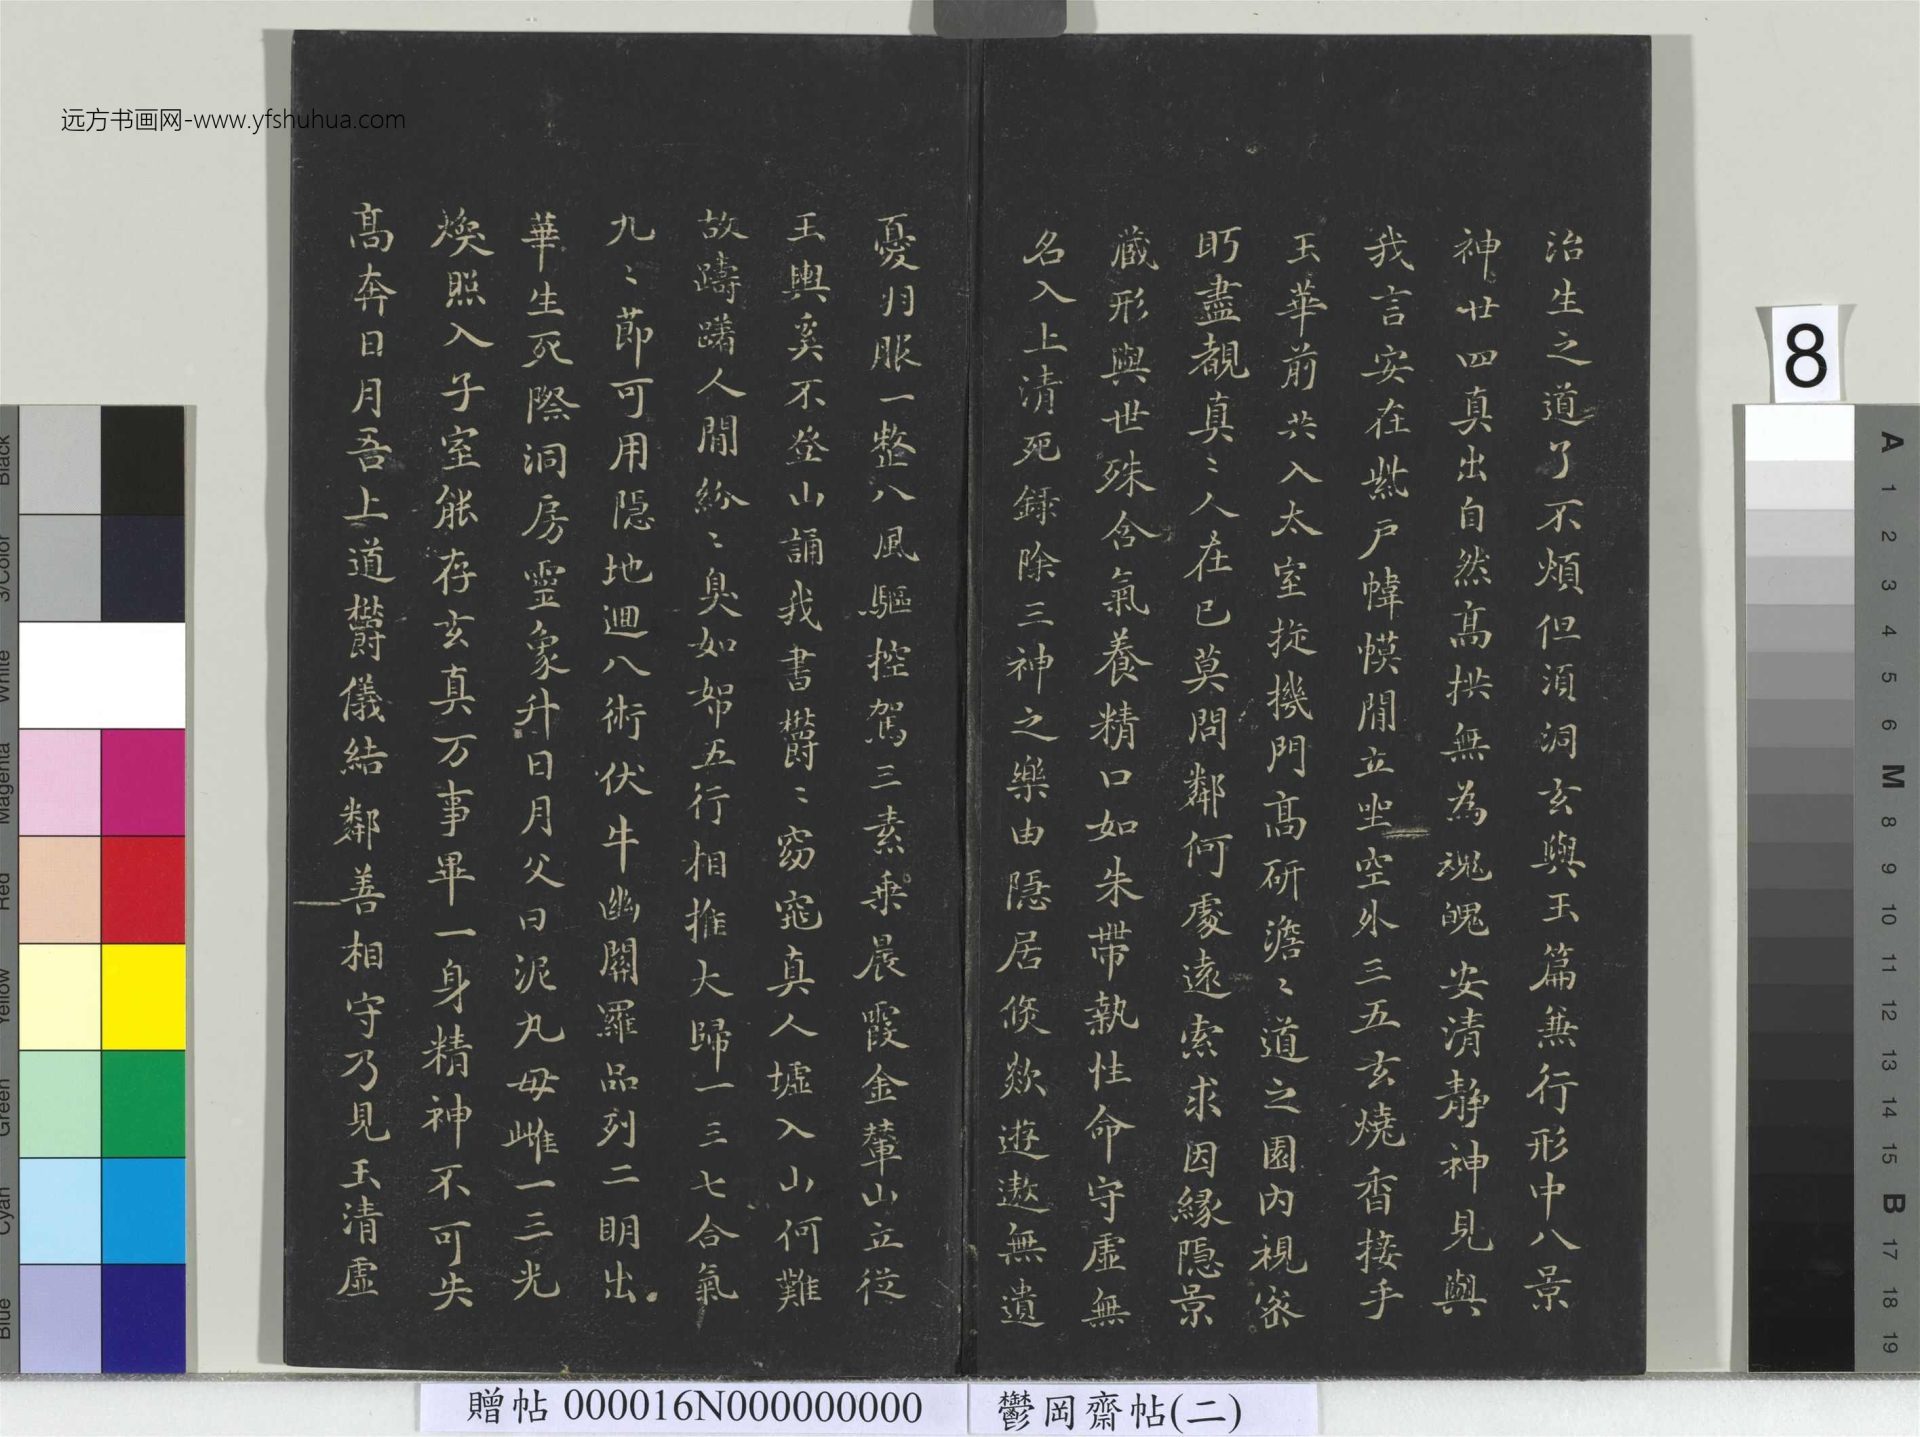 远方书画网-www.yfshuhua.com
治生之道了不煩但湏洞玄與玉篇兼行形中八景
神廿四真出自然高拱無為魂魄安清静神見與
我言安在紫戶幃幙間立坐空外三五玄燒香接手
玉華前共入太室㨁機門高研澹〻道之園内視密
盼盡覩真〻人在已莫問鄰何處遠索求因緣隱景
藏形與世殊含氣養精口如朱帶執性命守虛無
名入上清死録除三神之樂由隱居倏欻遊遨無遺
憂羽服一整八風驅控駕三素乗晨霞金輦正立從
玉輿奚不登山誦我書欝〻窈窕真人墟入山何難
故躊躇人間紛〻臭如帤五行相推大歸一三七合氣
九〻節可用隱地迴八術伏牛幽闕羅品列二明出
華生死際洞房靈象升日月父曰泥丸母雌一三光
煥照入子室能存玄真万事畢一身精神不可失
高奔日月吾上道欝儀結鄰善相守乃見玉清虛
8
贈帖 000016N000000000
鬱岡齋帖(二)
Black
3/Color
White
Magenta
Red
Yellow
Green
Cyan
Blue
A
1
2
3
4
5
6
M
8
9
10
11
12
13
14
15
B
17
18
19